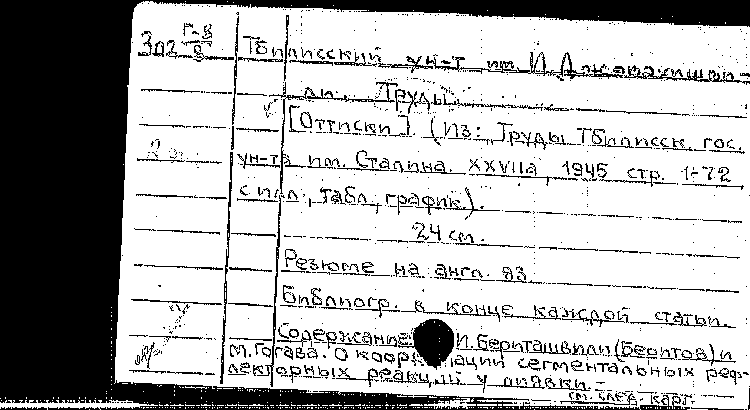 Г-В
302 8
Тбилисский ун-т им. И. Джавахишви-
ли. Труды.
[Оттиски]. (Из: Труды Тбилисск. гос.
ун-та им. Сталина. XXVIIа, 1945 стр. 1-72
с илл., табл., график.).
24 см.
Резюме на англ. яз.
Библиогр. в конце каждой статьи.
Содержание: И. Бериташвили (Беритов) и
М. Гогава. О координации сегментальных реф-
лекторных реакций у пиявки. -
см. след. карт.